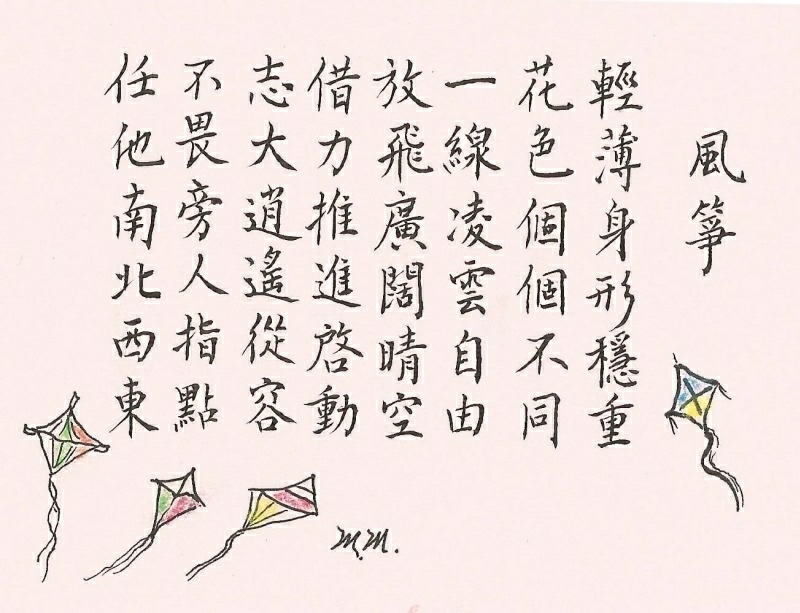 風箏
輕薄身形穩重
花色個個不同
一線凌雲自由
放飛廣闊晴空
借力推進啓動
志大逍遙從容
不畏旁人指點
任他南北西東
M.M.